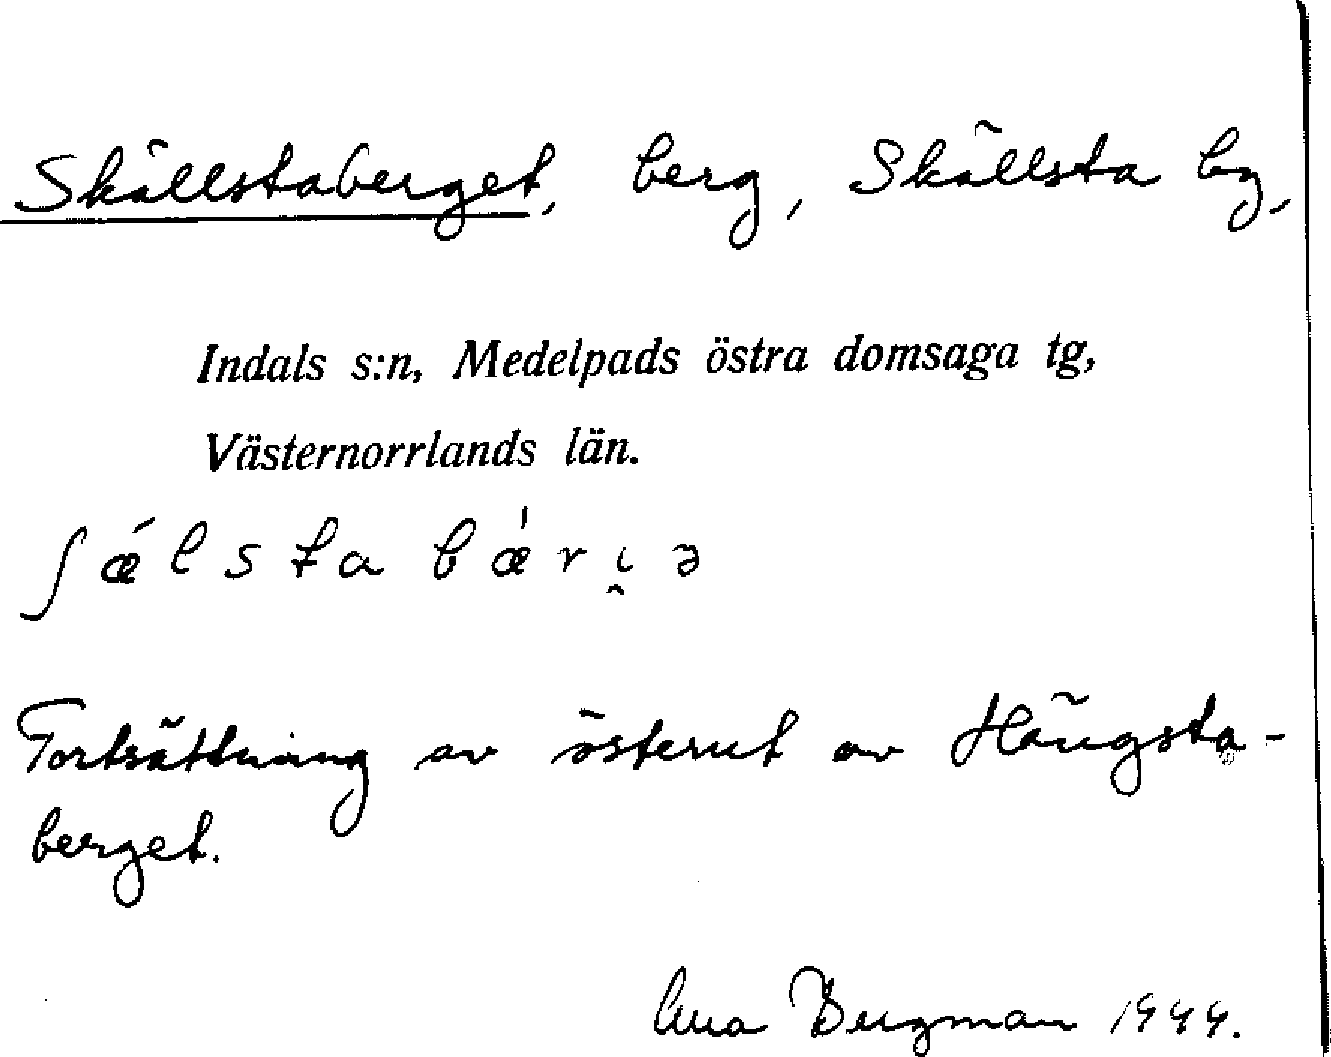 Skällstaberget, berg, Skällsta by,
Indals s:n, Medelpads östra domsaga tg,
Västernorrlands län.
ʃǽlsta bǽri̯ə
Fortsättning av österut av Hängsta-
berget.
Bergman 1944.